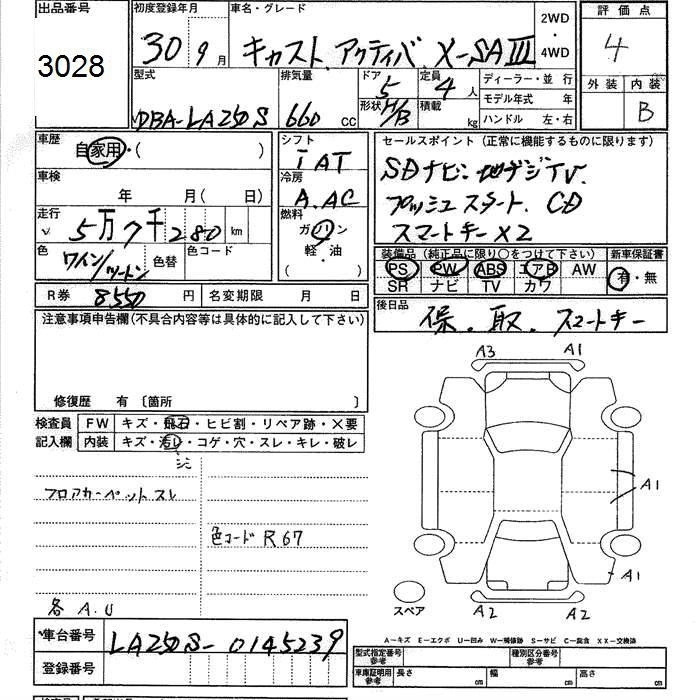 出品番号
3028
初度登録年月
30 9月
車名・グレード
キャスト アクティバ X-SAⅢ
2WD
・
4WD
評価点
4
外装 内装
B
型式
DBA-LA250S
排気量
660 cc
ドア
5
形状 H/B
定員
4人
積載 kg
ディーラー・並行
モデル年式 年
ハンドル 左・右
車歴
自家用・( )
車検
年 月( 日)
走行
5万7千280 km
色
ワイン/ツートン
色替
色コード
シフト
IAT
冷房
A.AC
燃料
ガソリン
軽・油
( )
セールスポイント (正常に機能するものに限ります)
SDナビ・地デジTV.
プッシュスタート. CD
スマートキー×2
装備品 (純正品に限り○をつけて下さい)
PS PW ABS エアB AW
SR ナビ TV カワ
新車保証書
有・無
R券 8550円
名変期限 月 日
後日品
保. 取. スマートキー
注意事項申告欄(不具合内容等は具体的に記入して下さい)
修復歴 有〔箇所 〕
検査員
記入欄
FW キズ・飛石・ヒビ割・リペア跡・×要
内装 キズ・汚レ・コゲ・穴・スレ・キレ・破レ
フロアカーペットスレ
色コード R67
各 A.U
A3 A1
A1
A1
A2 A2
スペア
A-キズ E-エクボ U-凹み W-補修跡 S-サビ C-腐食 XX-交換済
車台番号 LA250S-0145239
登録番号
型式指定番号
参考
種別区分番号
参考
車庫証明用
参考
長さ cm 幅 cm 高さ cm